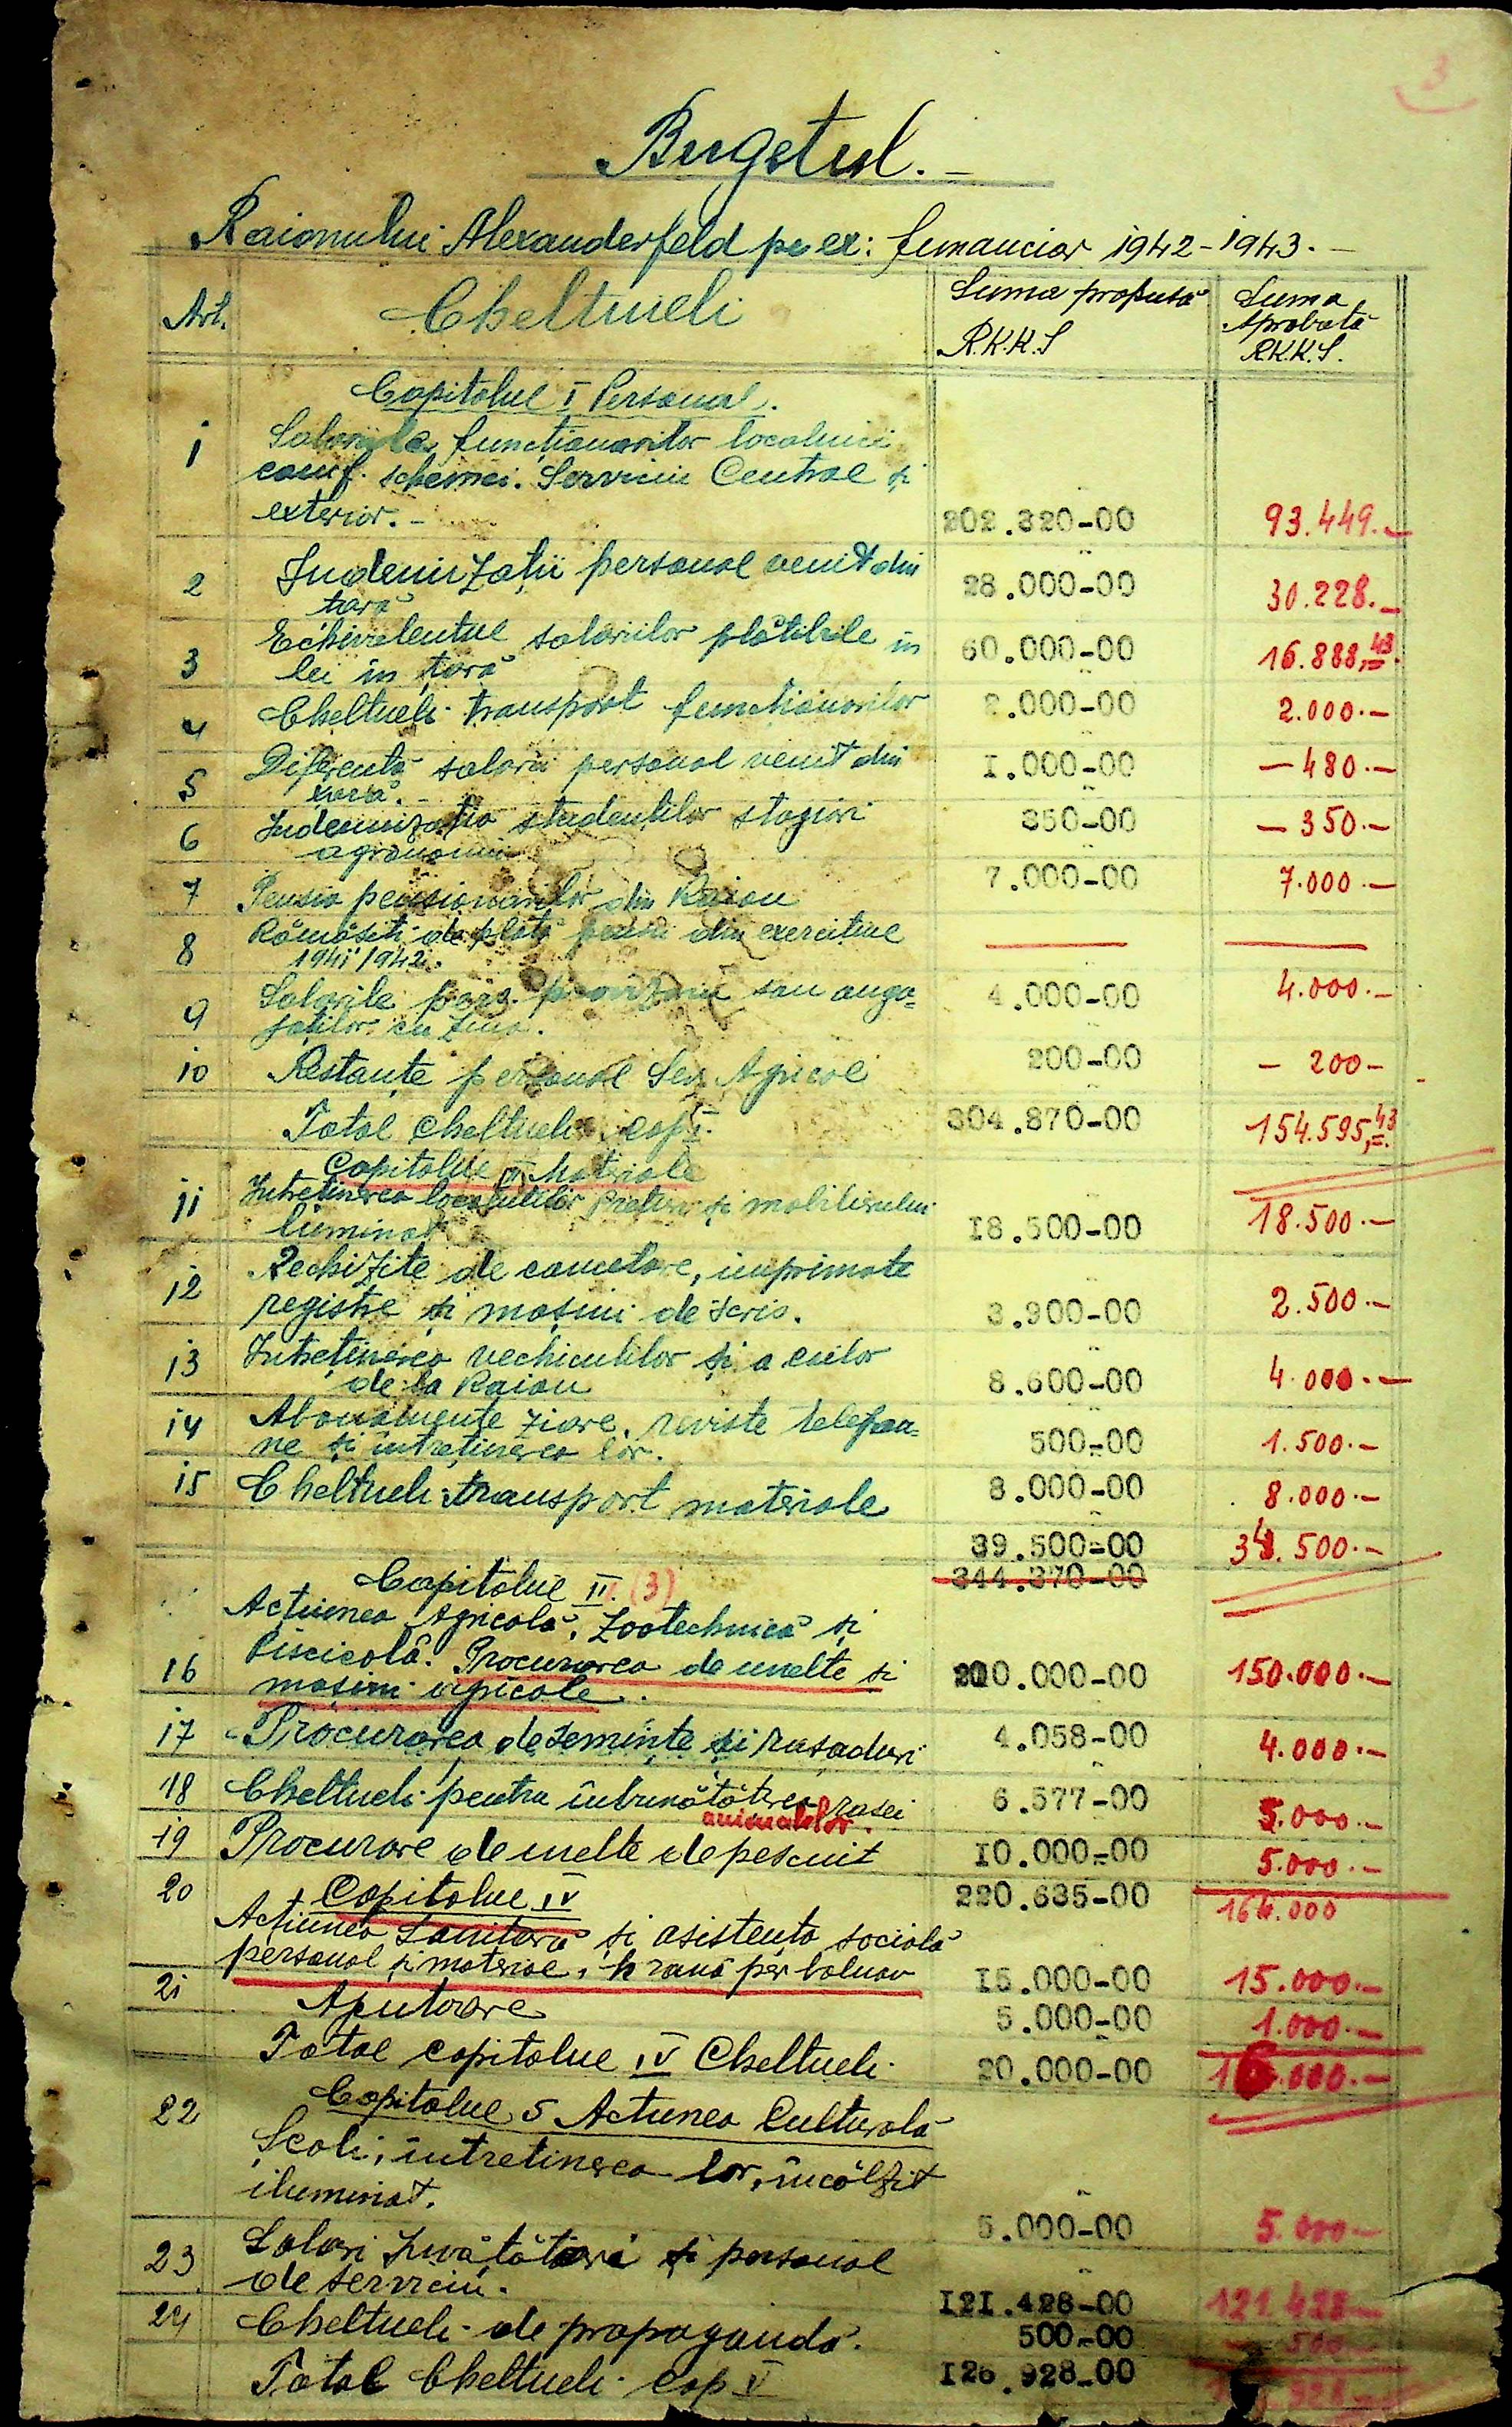 3
Bugetul. -
Raionului Alexanderfeld pe ex: finanaciar 1942-1943. -
Art. Cheltueli Suma propusă R.K.K.S Suma Aprobată RKKS.
Capitolul I Personal.
1 Salariile funcționarilor localnici
conf. schemei. Serviciu Central și
exterior. - 202.320-00 93.449.-
2 Indemnizații personal venit din
țară 28.000-00 30.228.-
3 Echivalentul salariilor plătibile în
lei în țară 60.000-00 16.888,43.
4 Cheltueli transport functionarilor 2.000-00 2.000.-
5 Diferentă salarii personal venit din
țară. - 1.000-00 -480.-
6 Indemnizatia studentilor stagiari
agronomi 350-00 -350.-
7 Pensia pensionarilor din Raion 7.000-00 7.000.-
8 Rămăsiti de plată din exercitiul
1941/1942.
9 Salariile pers. provizoriu sau anga=
jatilor cu ziua. 4.000-00 4.000.-
10 Restanțe personal Serv. Agricol 200-00 - 200-
Total cheltueli cap I. 304.870-00 154.595,43
Capitolul II Materiale
11 Intretinerea localului Preturi și mobilierului
luminat 18.500-00 18.500.-
12 Rechizite de cancelare, imprimate
registre și mașini de scris. 3.900-00 2.500.-
13 Intreținerea vechiculilor și a cailor
de la Raion 8.600-00 4.000.-
14 Abonamente ziare, reviste telefoa=
ne și întreținerea lor. 500-00 1.500.-
15 Cheltueli transport materiale 8.000-00 8.000.-
39.500-00 34.500.-
344.370-00
Capitolul III. (3)
Acțiunea Agricolă, Zootechnică și
Piscicolă. Procurarea de unelte si
16 mașini agricole. 200.000-00 150.000.-
17 Procurarea de seminte și rasaduri 4.058-00 4.000.-
18 Cheltueli pentru îmbunătătirea rasei 6.577-00 5.000.-
animalelor.
19 Procurare de unelte de pescuit 10.000-00 5.000.-
20 Capitolul IV 220.635-00 164.000
Acțiunea Sanitară și asistenta socială
personal și material, hrană ptr bolnav 15.000-00 15.000.-
21 Ajutoare 5.000-00 1.000.-
Total capitolul IV Cheltueli 20.000-00 16.000.-
22 Capitolul 5 Actiunea Culturală
Școli, întretinerea lor, încălzit
iluminat. 5.000-00 5.000-
23 Salarii Învățători și personal
de serviciu. 121.428-00 121.428-
24 Cheltueli de propagandă. 500-00 500-
Total Cheltueli cap V 126.928-00